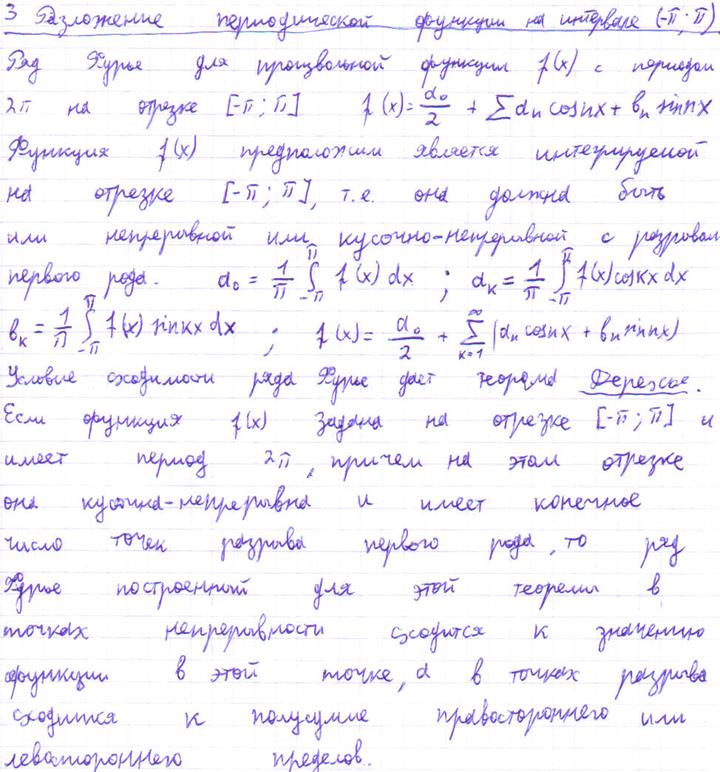 3 Разложение периодической функции на интервале (-π; π)
Ряд Фурье для произвольной функции f(x) с периодом
2π на отрезке [-π; π] f(x) = a₀/2 + ∑ aₙ cos nx + bₙ sin nx
Функция f(x) предположим является интегрируемой
на отрезке [-π; π], т.е. она должна быть
или непрерывной или кусочно-непрерывной с разрывом
первого рода. a₀ = 1/π ∫_{-π}^{π} f(x) dx ; aₖ = 1/π ∫_{-π}^{π} f(x) cos kx dx
bₖ = 1/π ∫_{-π}^{π} f(x) sin kx dx ; f(x) = a₀/2 + ∑_{k=1}^{∞} (aₙ cos nx + bₙ sin nx)
Условие сходимости ряда Фурье дает теорема
Если функция f(x) задана на отрезке [-π; π] и
имеет период 2π, причем на этом отрезке
она кусочна-непрерывна и имеет конечное
число точек разрыва первого рода, то ряд
Фурье построенный для этой теоремы в
точках непрерывности сходится к значению
функции в этой точке, а в точках разрыва
сходится к полусумме правостороннего или
левостороннего пределов.